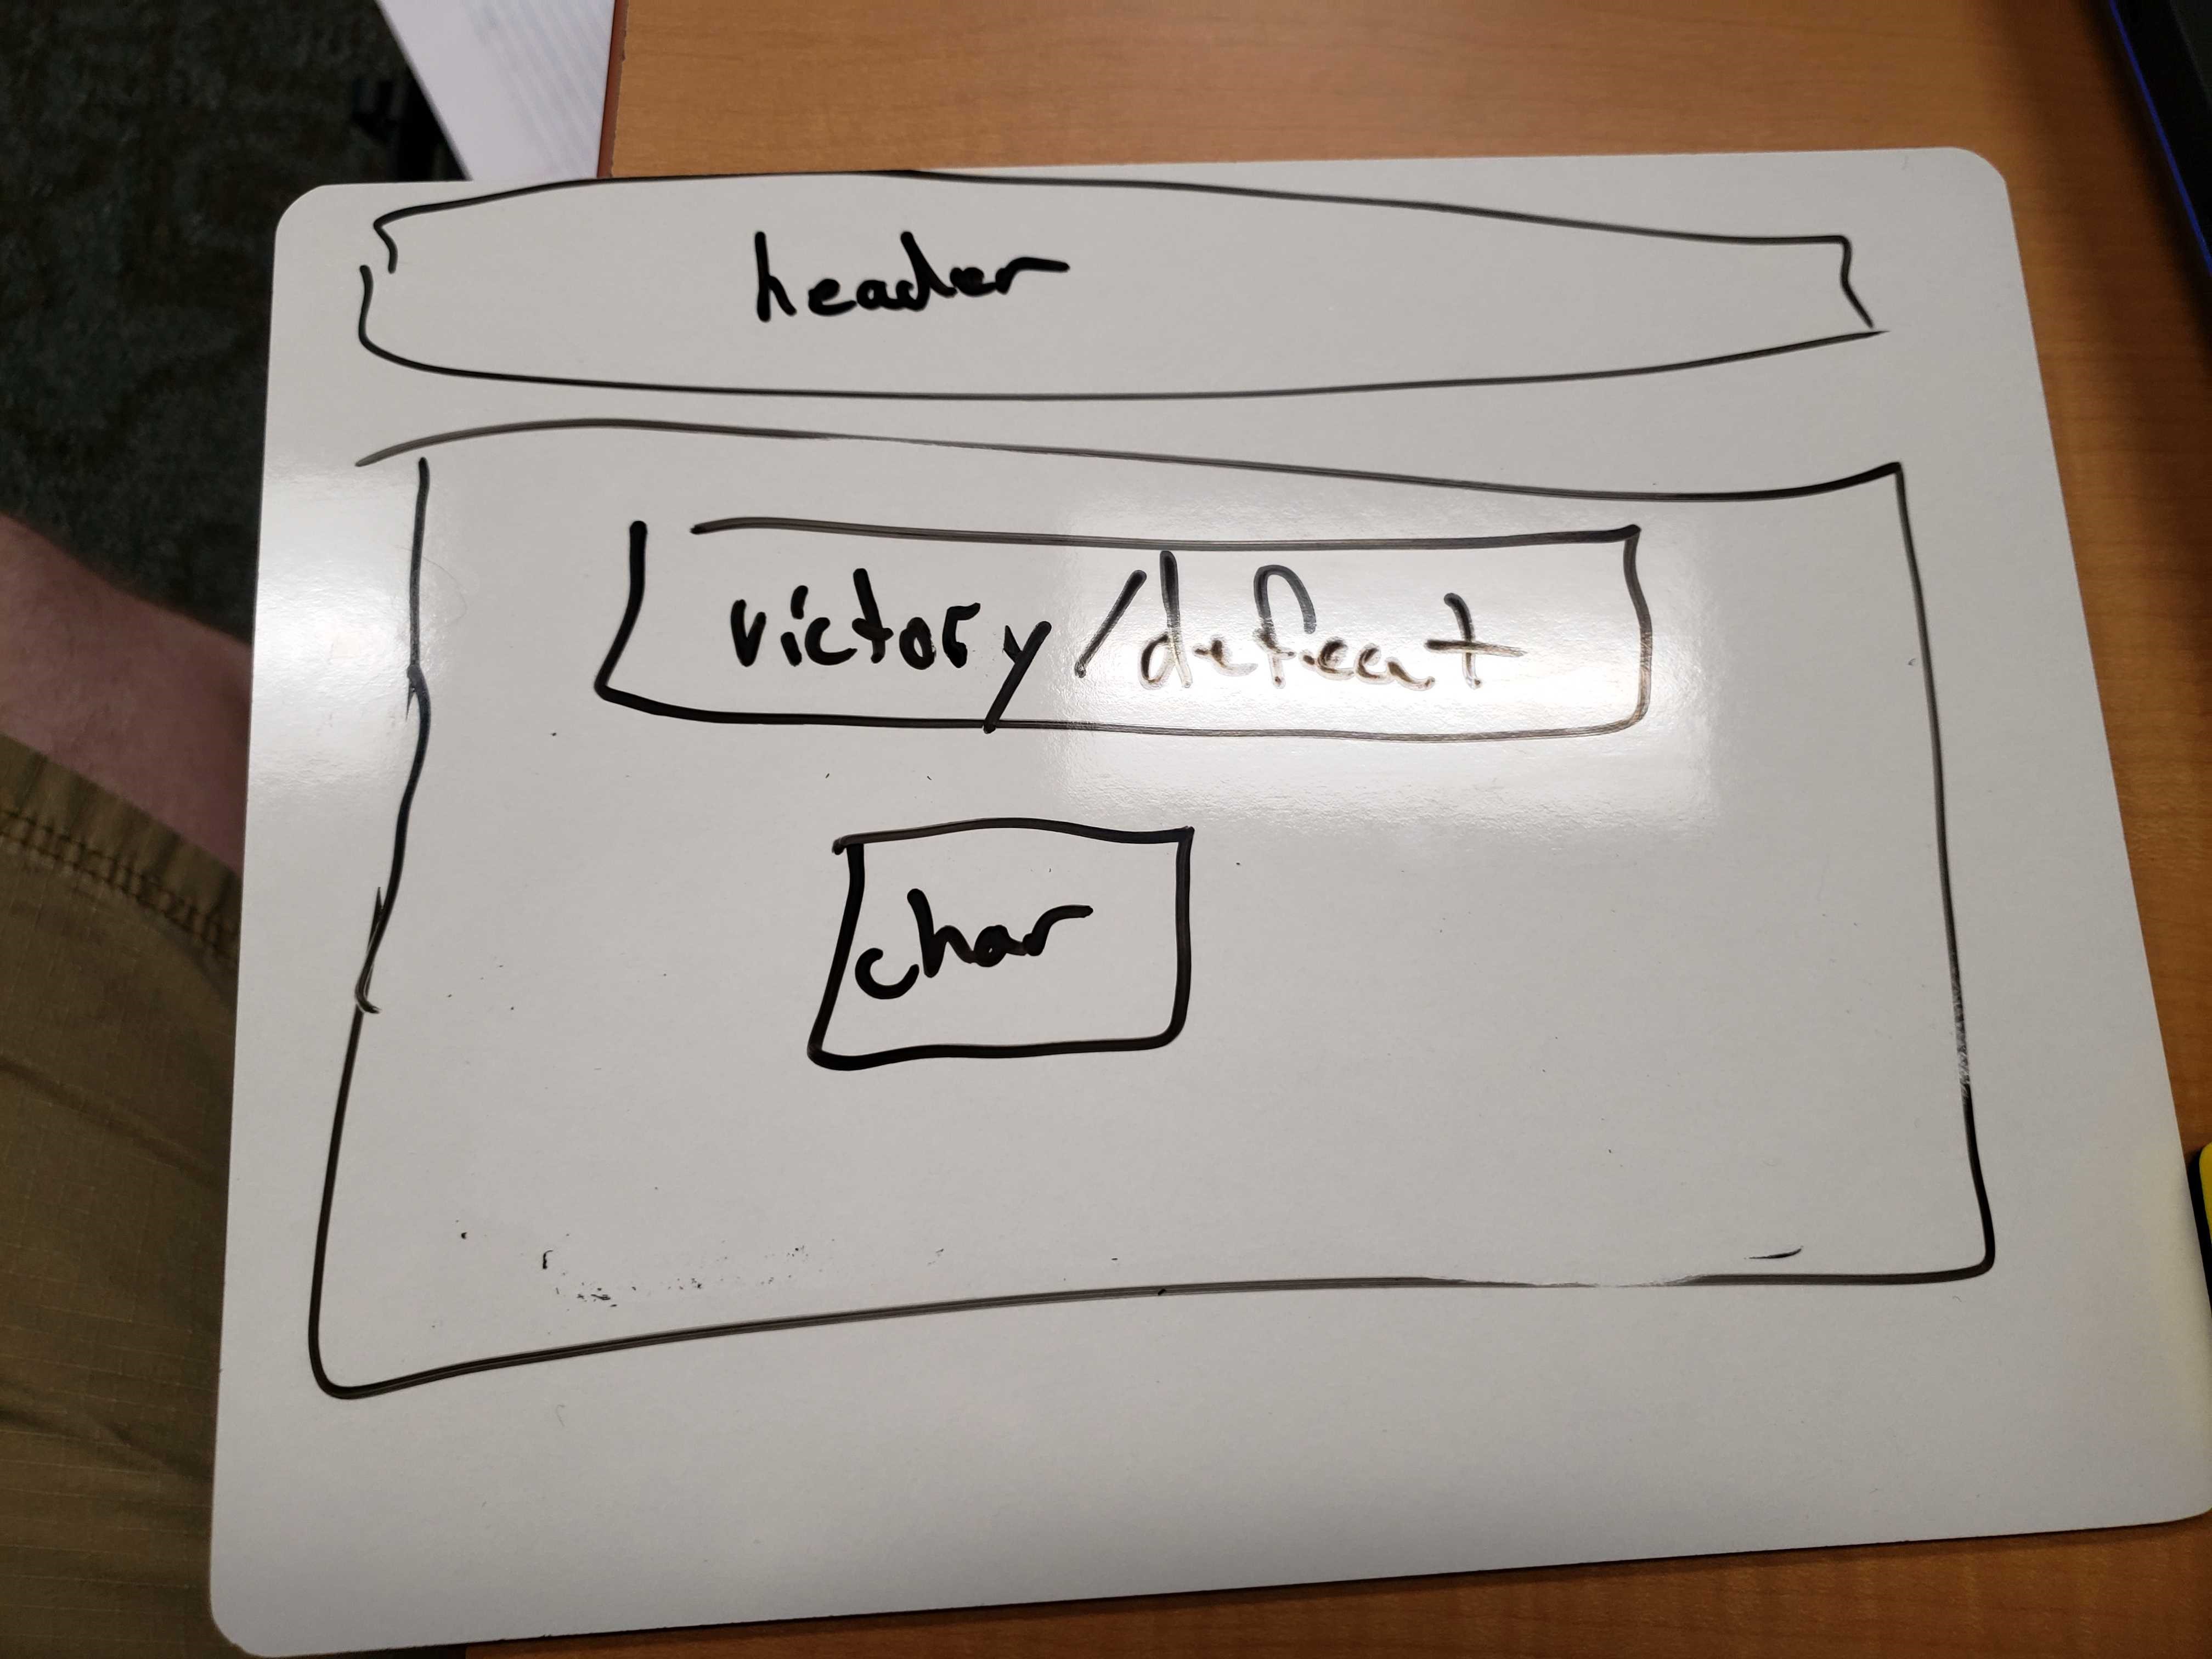 header
victory/defeat
char